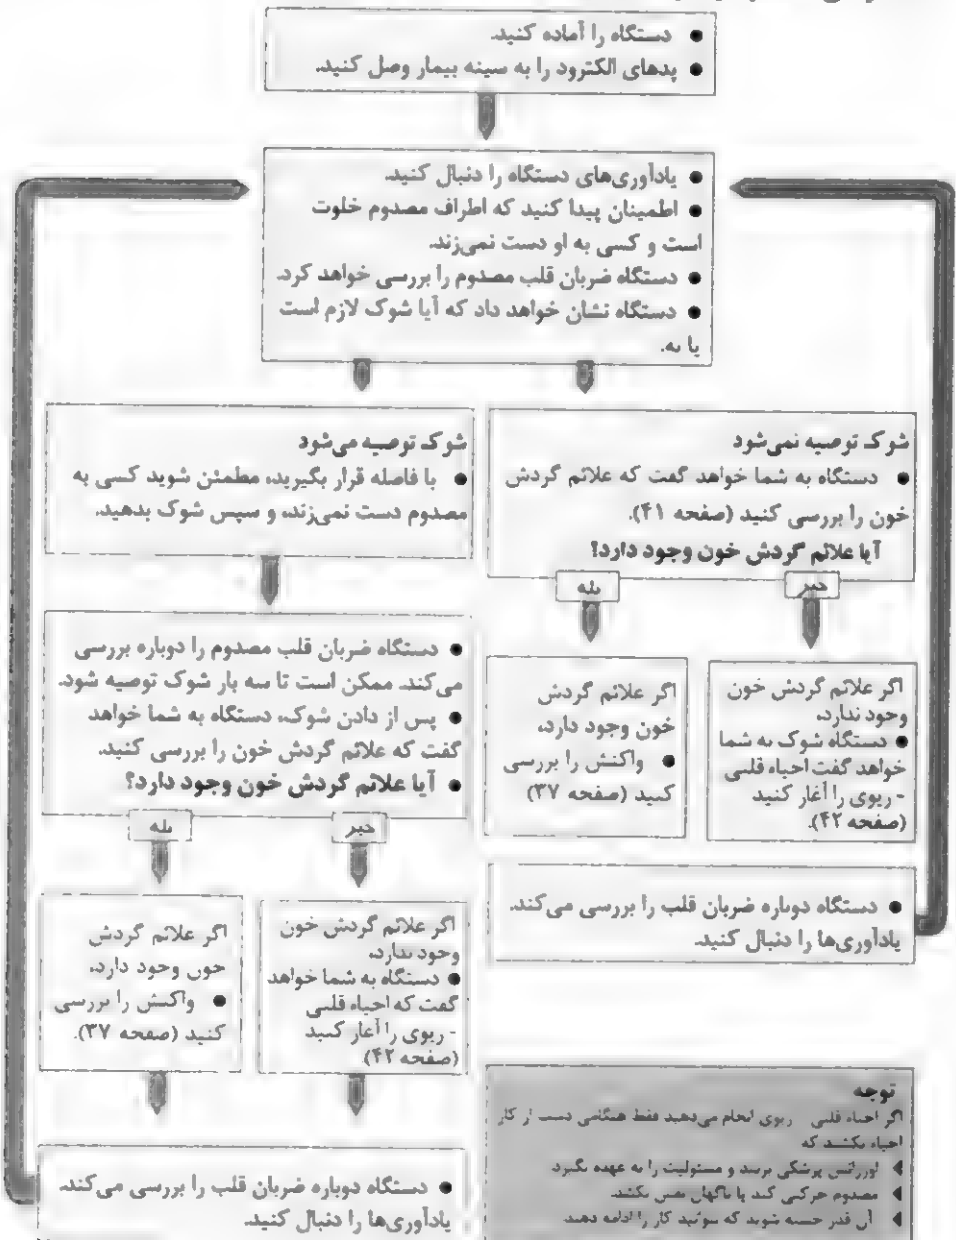 ● دستگاه را آماده کنید.
● پدهای الکترود را به سینه بیمار وصل کنید.
● یادآوری‌های دستگاه را دنبال کنید.
● اطمینان پیدا کنید که اطراف مصدوم خلوت
است و کسی به او دست نمی‌زند.
● دستگاه ضربان قلب مصدوم را بررسی خواهد کرد.
● دستگاه نشان خواهد داد که آیا شوک لازم است
یا نه.
شوک توصیه نمی‌شود
● دستگاه به شما خواهد گفت که علائم گردش
خون را بررسی کنید (صفحه ۴۱).
آیا علائم گردش خون وجود دارد؟
خیر
بله
اگر علائم گردش خون
وجود ندارد،
● دستگاه شوک به شما
خواهد گفت احیاء قلبی
- ریوی را آغاز کنید
(صفحه ۴۲).
اگر علائم گردش
خون وجود دارد،
● واکنش را بررسی
کنید (صفحه ۳۷)
● دستگاه دوباره ضربان قلب را بررسی می‌کند.
یادآوری‌ها را دنبال کنید.
شوک توصیه می‌شود
● با فاصله قرار بگیرید، مطمئن شوید کسی به
مصدوم دست نمی‌زند، و سپس شوک بدهید.
● دستگاه ضربان قلب مصدوم را دوباره بررسی
می‌کند. ممکن است تا سه بار شوک توصیه شود.
● پس از دادن شوک، دستگاه به شما خواهد
گفت که علائم گردش خون را بررسی کنید.
● آیا علائم گردش خون وجود دارد؟
خیر
بله
اگر علائم گردش خون
وجود ندارد،
● دستگاه به شما خواهد
گفت که احیاء قلبی
- ریوی را آغاز کنید
(صفحه ۴۲)
اگر علائم گردش
خون وجود دارد،
● واکنش را بررسی
کنید (صفحه ۳۷).
● دستگاه دوباره ضربان قلب را بررسی می‌کند.
یادآوری‌ها را دنبال کنید.
توجه
اگر احیاء قلبی ریوی انجام می‌دهید فقط هنگامی دست از کار
احیاء بکشید که
◀ اورژانس پزشکی برسد و مسئولیت را به عهده بگیرد.
◀ مصدوم حرکتی کند یا ناگهان نفس بکشد.
◀ آن قدر خسته شوید که نتوانید کار را ادامه دهید